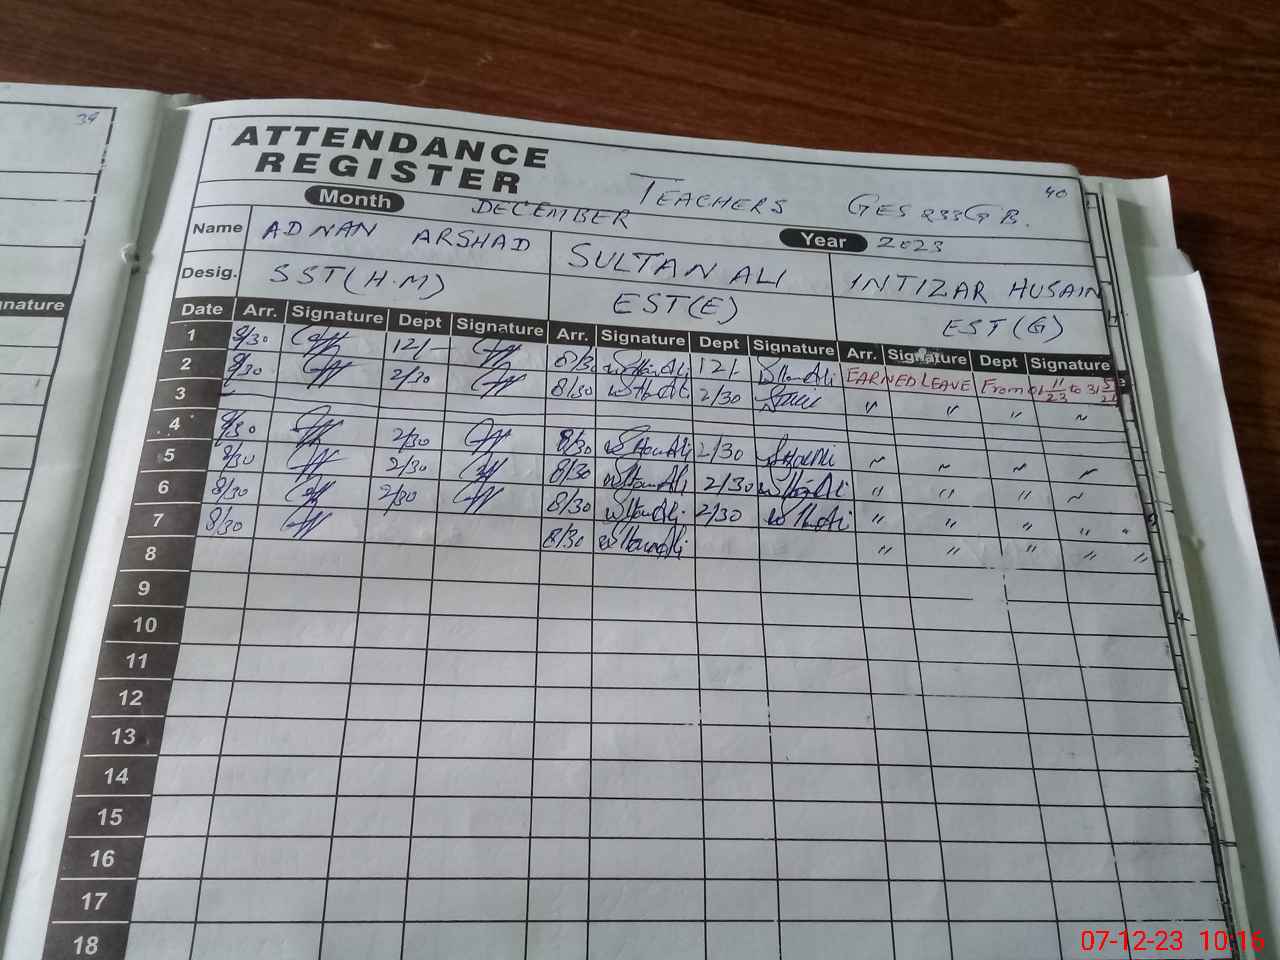 39
40
ATTENDANCE
REGISTER
TEACHERS GES 233 GB.
Month DECEMBER Year 2023
Name ADNAN ARSHAD SULTAN ALI INTIZAR HUSAIN
Desig. SST(H.M) EST(E) EST(G)
nature
Date Arr. Signature Dept Signature Arr. Signature Dept Signature Arr. Signature Dept Signature
1 8/30 12/- 8/30 Sultan Ali 12/- Sultan Ali EARNED LEAVE From
2 8/30 2/30 8/30 Sultan Ali 2/30 " " " "
3
4 8/30 2/30 8/30 Sultan Ali 2/30 Sultan Ali " " " "
5 8/30 2/30 8/30 Sultan Ali 2/30 Sultan Ali " " " "
6 8/30 2/30 8/30 Sultan Ali 2/30 Sultan Ali " " " "
7 8/30 8/30 Sultan Ali " " " " "
8
9
10
11
12
13
14
15
16
17
18
07-12-23 10:16